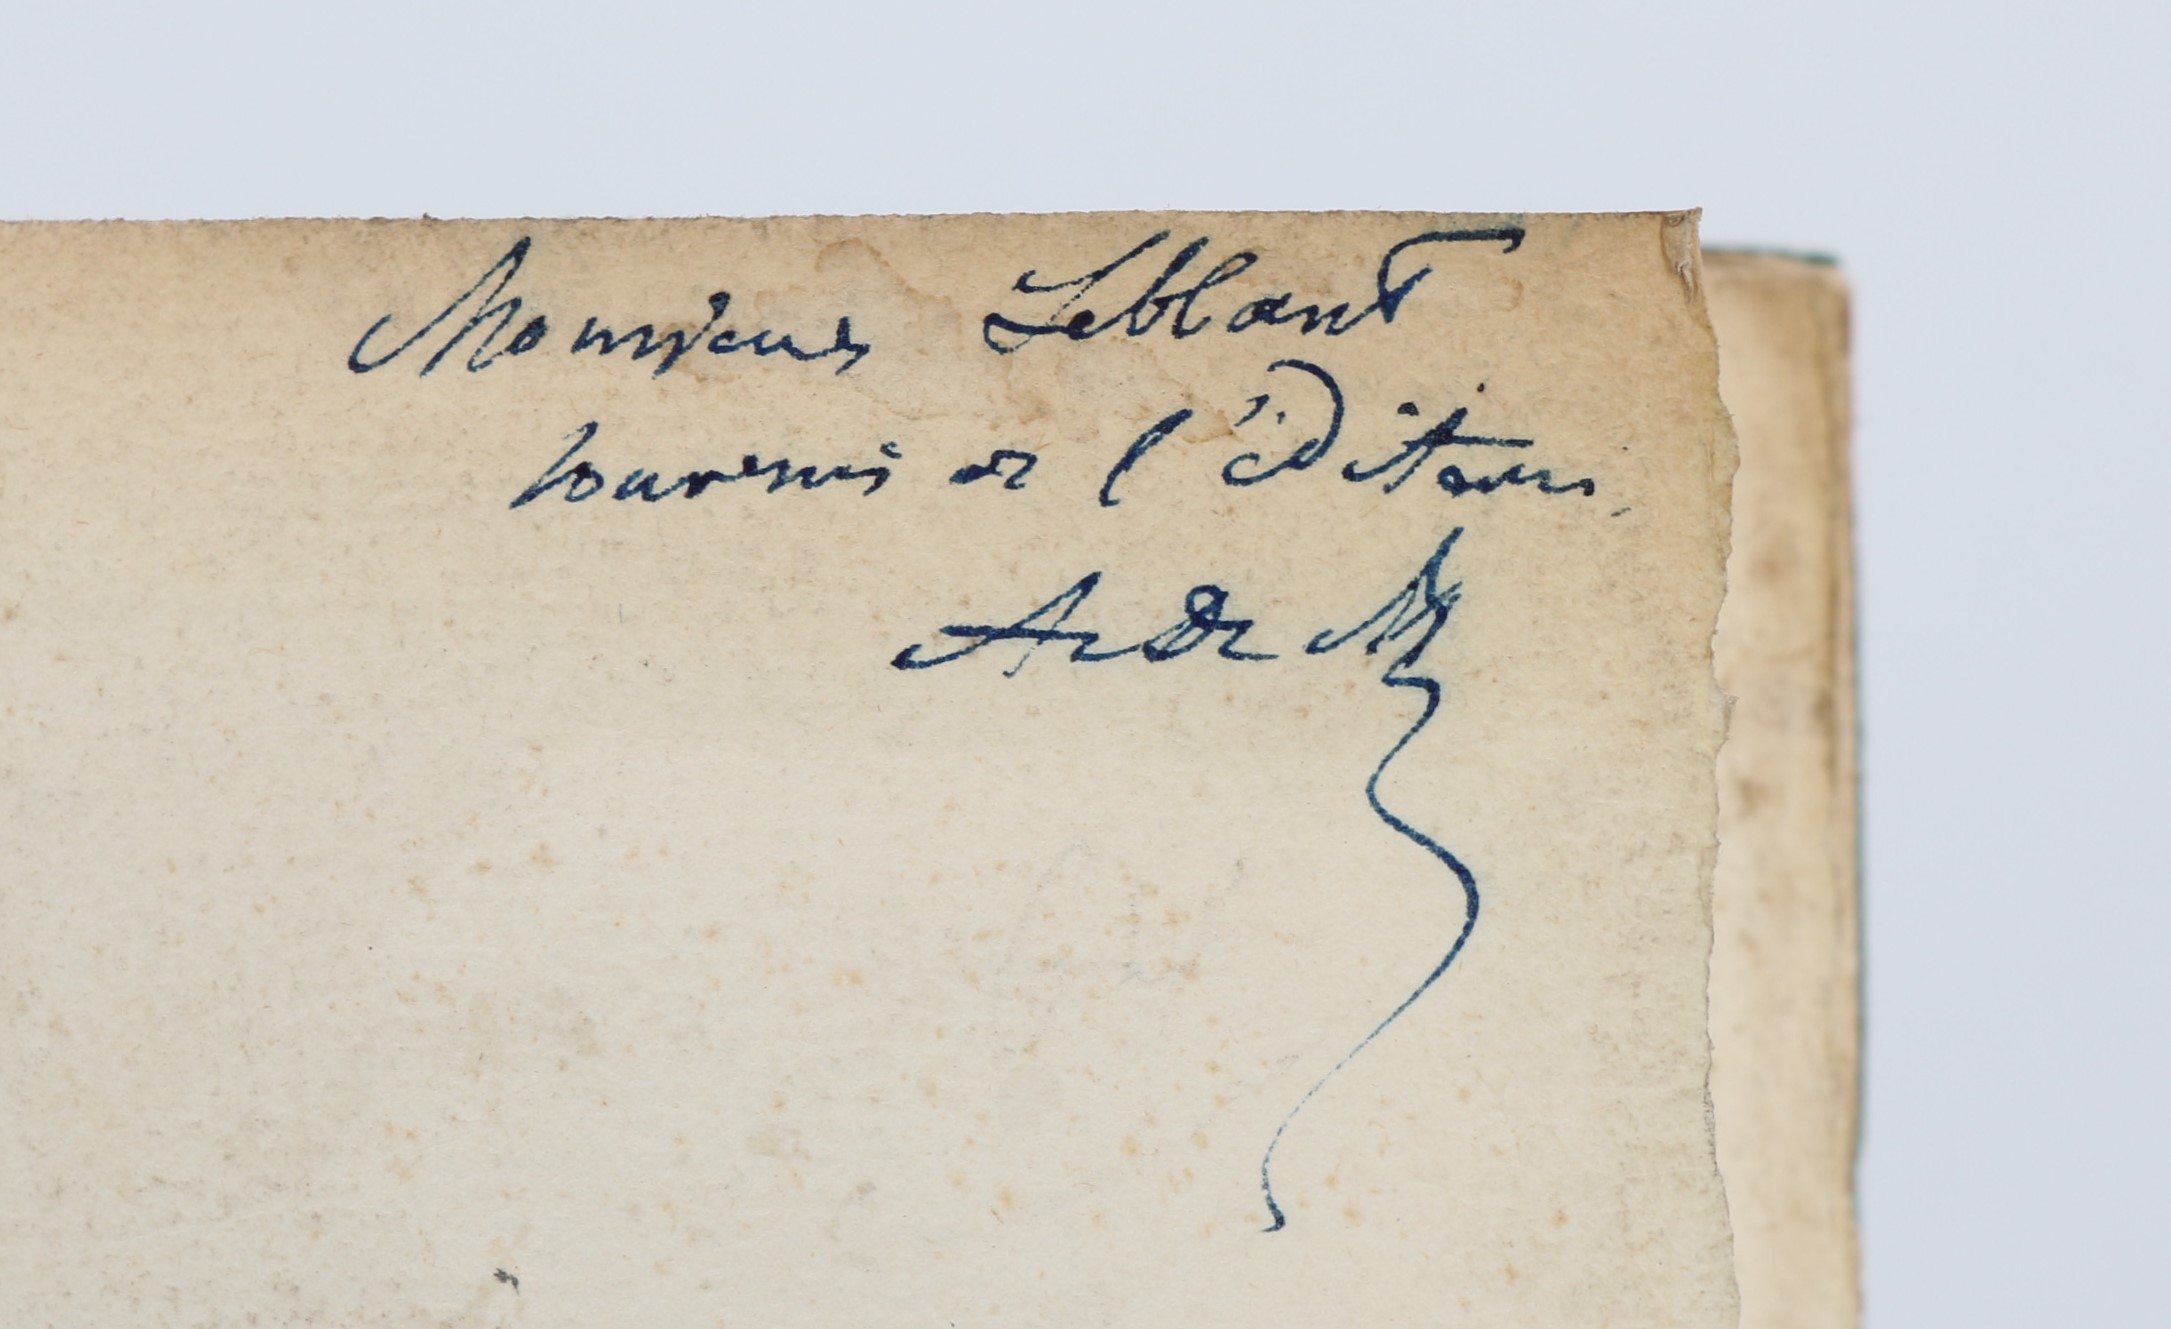 Monsieur Leblant
souvenir de l'éditeur,
A de M